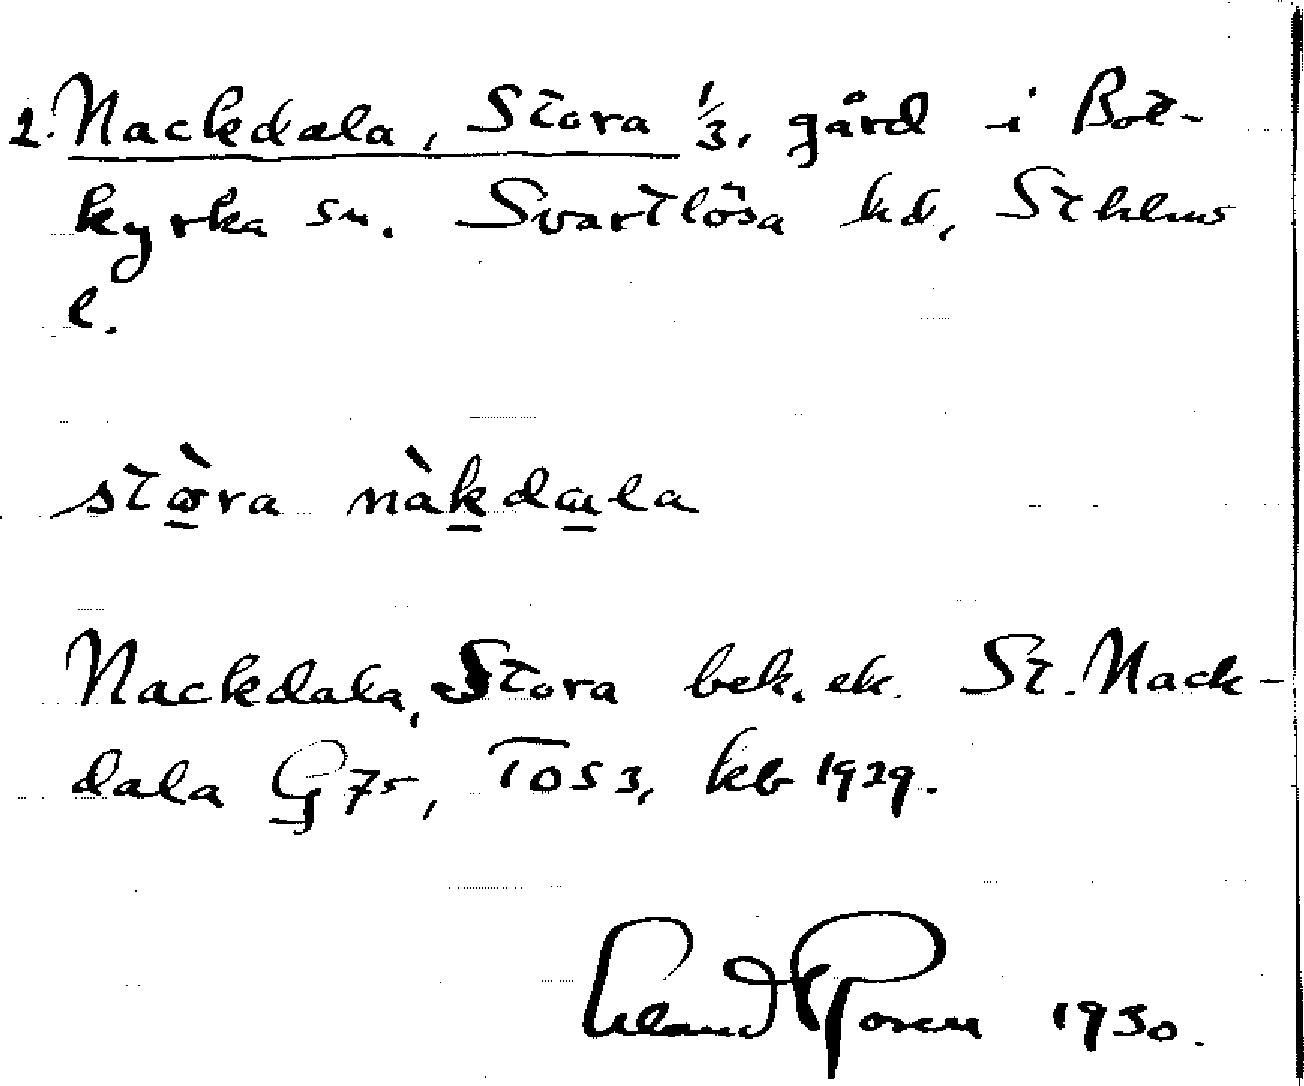 2. Nackdala, Stora 1/3, gård i Bot-
kyrka sn. Svartlösa hd, Sthlms
l.
stòra nàkdala
Nackdala, Stora bek. ek. St. Nack-
dala G 75, TOS 3, kb 1929.
Erland Rosell 1930.